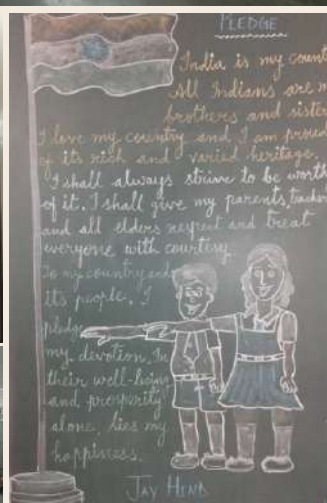 PLEDGE
India is my count
All Indians are m
brothers and sister
I love my country and I am prou
of its rich and varied heritage.
I shall always strive to be worth
of it. I shall give my parents, teacher
and all elders respect and treat
everyone with courtesy.
To my country and
its people, I
pledge
my devotion. In
their well-being
and prosperity
alone, lies my
happiness.
JAY HIND